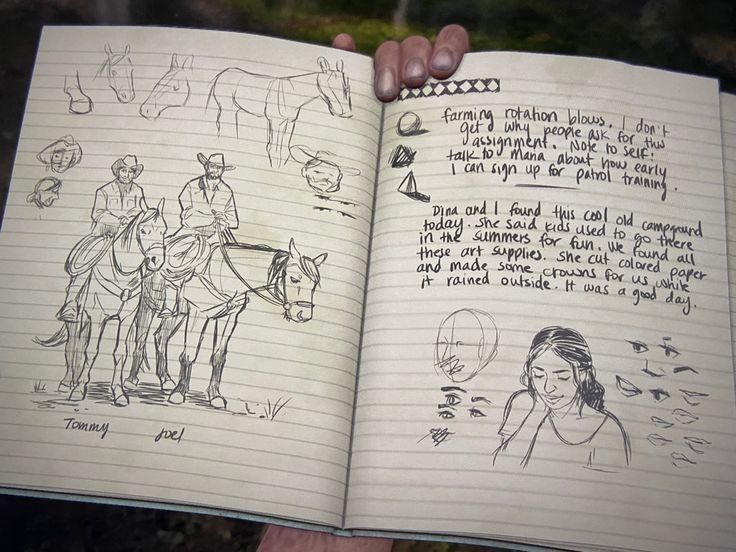 Tommy
Joel
farming rotation blows. I don't
get why people ask for this
assignment. Note to self:
talk to Maria about how early
I can sign up for patrol training.
Dina and I found this cool old campground
today. She said kids used to go there
in the summers for fun. We found all
these art supplies. She cut colored paper
and made some crowns for us while
it rained outside. It was a good day.